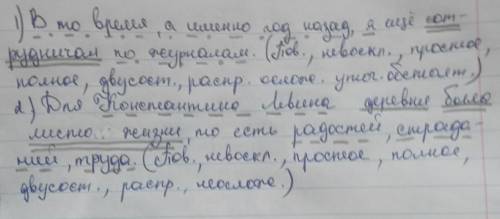 1) В то время, а именно год назад, я ещё сот-
рудничал по журналам. (Пов., невоскл., простое,
полное, двусост., распр. ослож. уточ. обстоят.)
2) Для Константина Левина деревня была
место жизни, то есть радостей, страда-
ний, труда. (Пов., невоскл., простое, полное,
двусост., распр., неослож.)